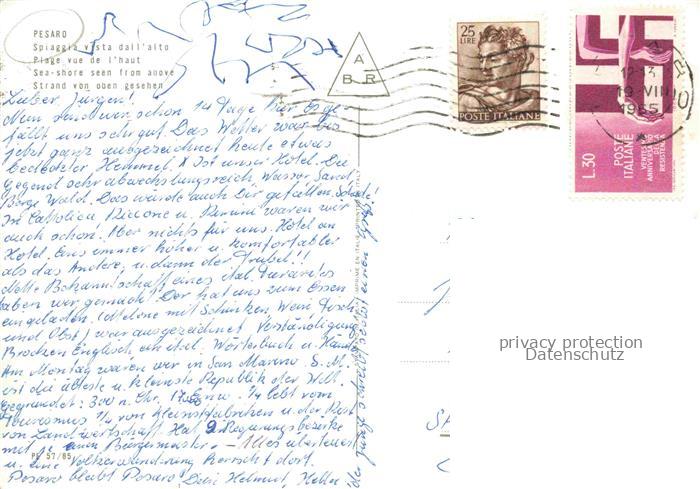 PESARO
Spiaggia vista dall'alto
Plage vue de l'haut
Sea-shore seen from above
Strand von oben gesehen
Lieber Jürgen!
schon 14 Tage hier. Es ge-
fällt uns sehr gut. Das Wetter war bis
jetzt ganz ausgezeichnet heute etwas
bedeckter Himmel. X Ist unser Hotel. Die
Gegend sehr abwechslungsreich Wasser Sand
Berge Wald. Das würde auch Dir gefallen. Schade!
In Cattolica Riccione u. Rimini waren wir
auch schon. Aber nichts für uns. Hotel an
Hotel. Eins immer höher u. komfortabler
als das Andere, u. dann der Trubel!!
Nette Bekanntschaft eines ital.
haben wir gemacht. Der hat uns zum Essen
eingeladen. (Melone mit Schinken, Wein, Fisch
und Obst) war ausgezeichnet. Verständigung
Brocken Englisch, ein ital. Wörterbuch u. Hände
Am Montag waren wir in San Marino. S. M.
ist die älteste u. kleinste Republik der Welt.
Gegründet: 300 n. Chr. Einw. 1/4 lebt vom
Tourismus 1/4 von Kleinstfabriken u. der Rest
von Landwirtschaft. Hat 9 Regierungsbezirke
mit je einem Bürgermeister. – Alles überteuert
u. eine Völkerwanderung herrscht dort.
Pesaro bleibt Pesaro. Dein Helmut,
der Junge schreibt selbst einen Gruß
PE 57/85
A
B R
25
LIRE
POSTE ITALIANE
L.30
POSTE
ITALIANE
VENTESIMO
ANNIVERSARIO
DELLA
RESISTENZA
12-13
19 VIII
1965
privacy protection
Datenschutz